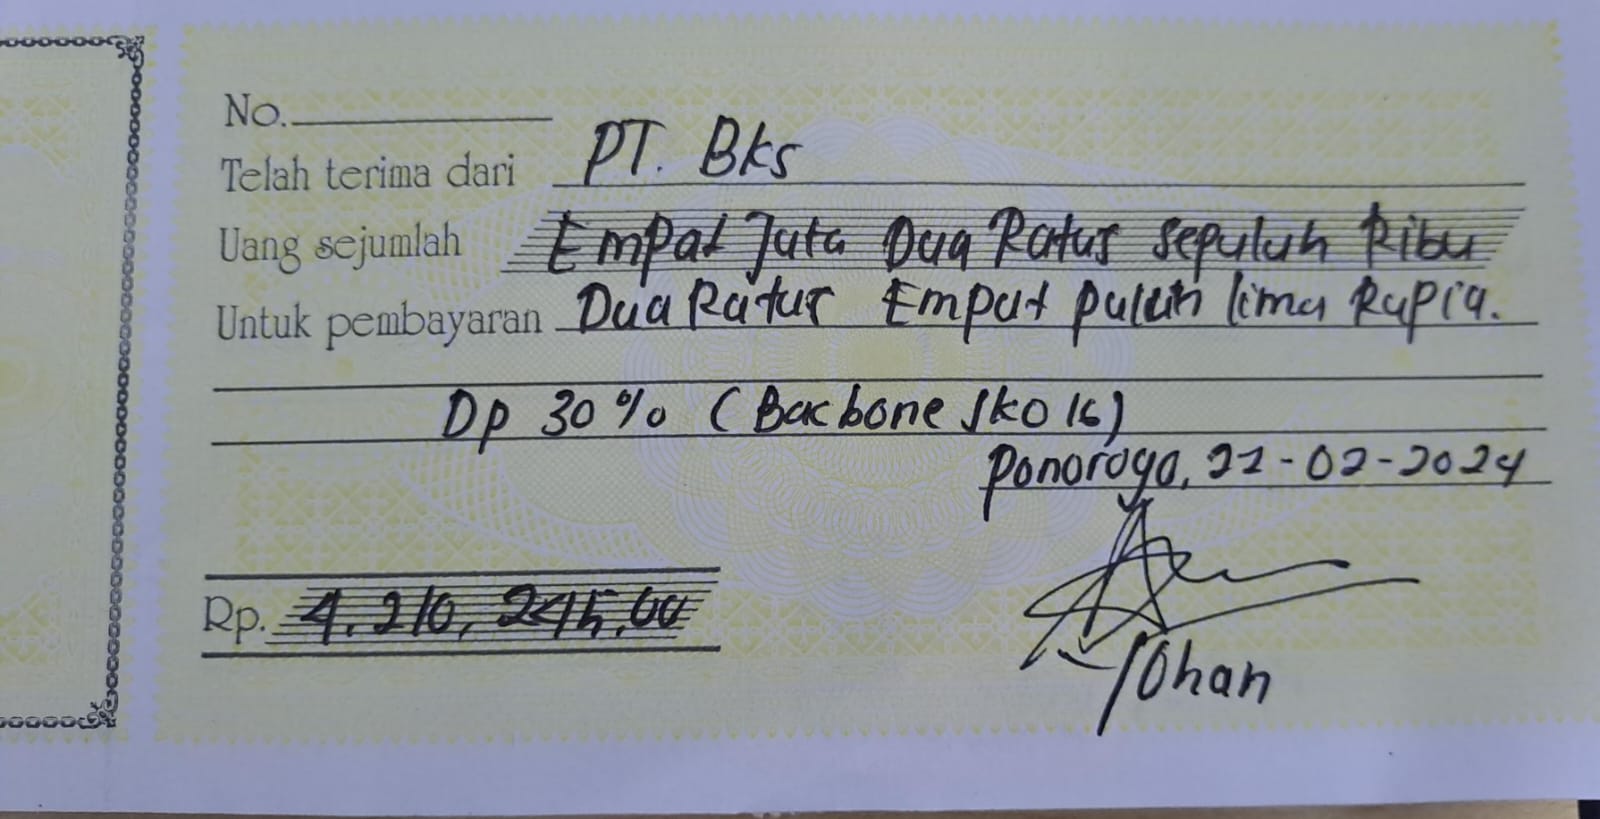 No.
Telah terima dari PT. Bks
Uang sejumlah Empat Juta Dua Ratus Sepuluh Ribu
Untuk pembayaran Dua Ratus Empat Puluh lima Rupia.
Dp 30% (Bacbone Sko 16)
Ponorogo, 22-02-2024
Rp. 4.210,245,00
Johan